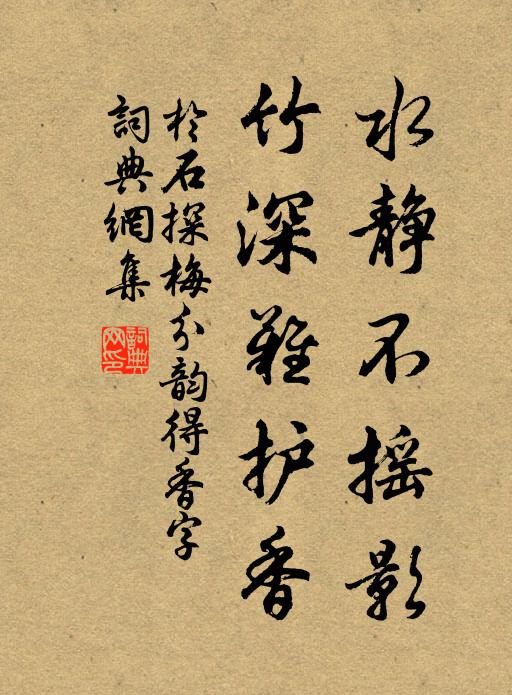 水靜不摇影
竹深難护香
於石探梅分韵得香字
詞典網集
詞典網印